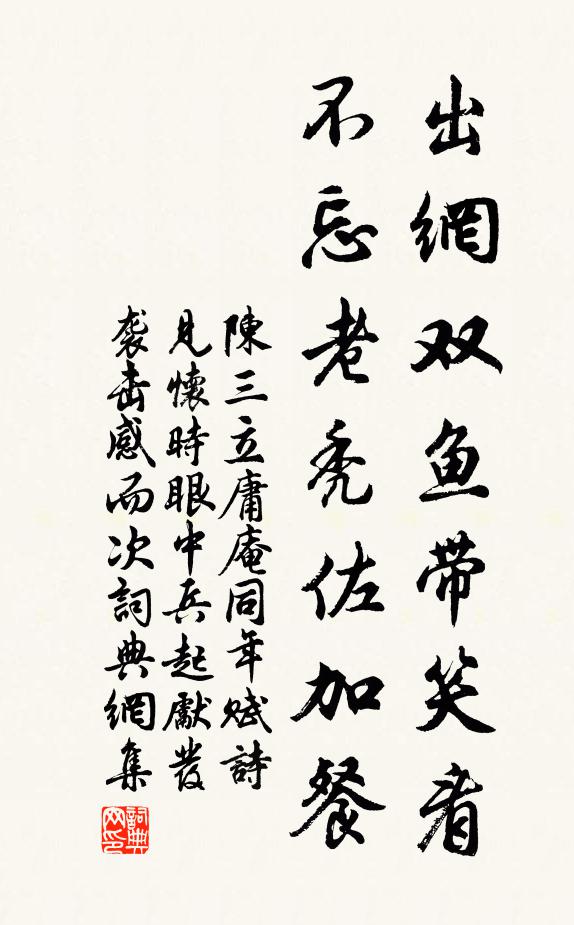 出網双鱼带笑看
不忘老秃佐加餐
陳三立庸庵同年赋詩
見懷時眼中兵起獻發
袭击感而次詞典網集
詞典
网印